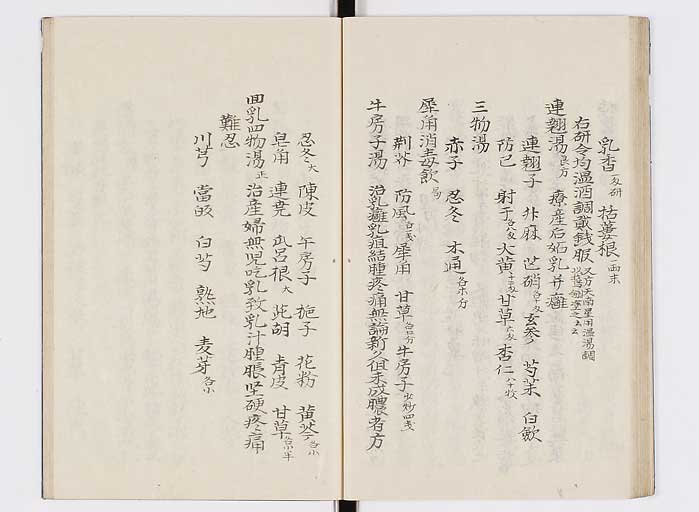 乳香一戔研 栝蔞根一両末
右研令均温酒調貳銭服
連翹湯良方 療産后妬乳并癰
連翹子 升麻 芒硝各十戔 玄参 芍藥 白歛
防已 射干各八戔 大黄十二戔 甘草六戔 杏仁八十枚
三物湯
赤子 忍冬 木通各等分
犀角消毒飲局
荊芥 防風各二戔 犀角 甘草各一分 牛房子少炒四戔
牛房子湯 治乳癰乳疽結腫疼痛無論新久但未成膿者方
忍冬大 陳皮 牛房子 梔子 花粉 黄芩各小
皂角 連堯 瓜呂根大 茈胡 青皮 甘草各小半
回乳四物湯正 治産婦無児吃乳致乳汁腫脹坚硬疼痛
難忍
川芎 當皈 白芍 熟地 麦芽各小